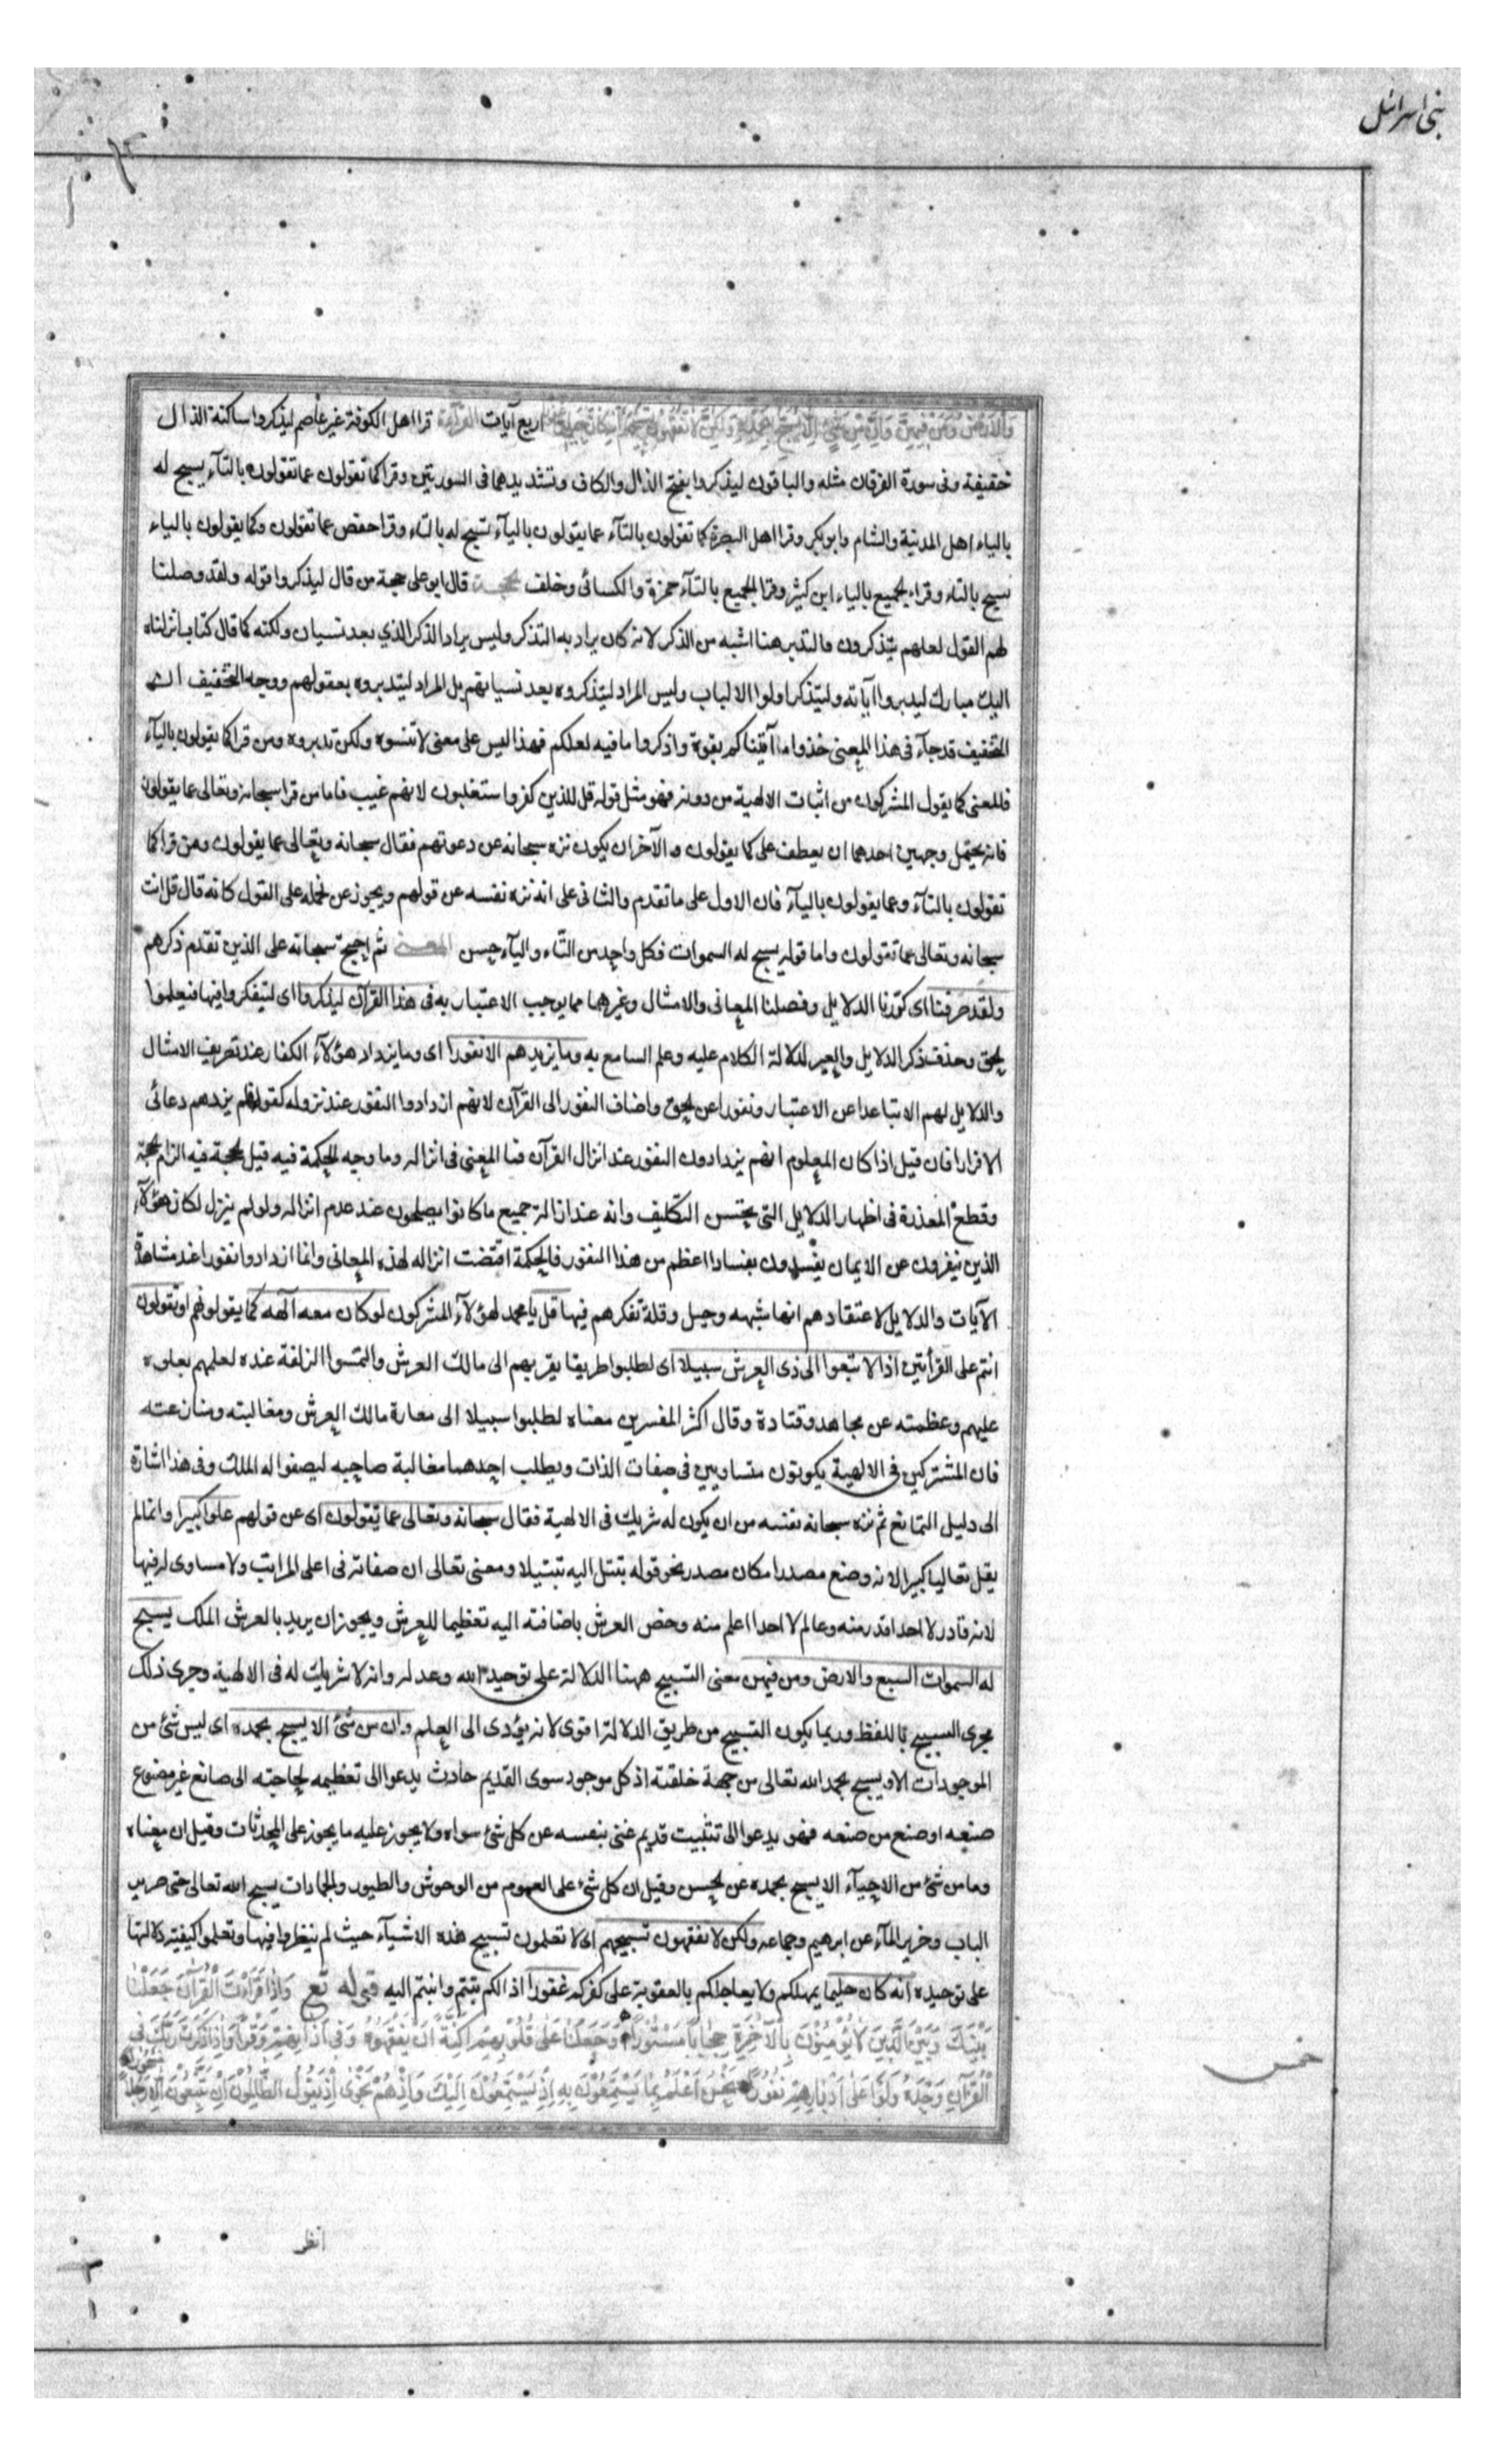 بنی اسرائل
وَالاَرْضُ وَمَنْ فِيهِنَّ وَاِنْ مِنْ شَيْءٍ اِلاَّ يُسَبِّحُ بِحَمْدِهِ وَلَكِنْ لاَ تَفْقَهُونَ تَسْبِيحَهُمْ اربع آيات القرآءة قرا اهل الكوفة غير عاصم ليذكروا ساكنة الذال
خفيفة وفى سورة الفرقان مثله والباقون ليذكروا بفتح الذال والكاف وتشديدهما فى السورتين وقرا كما تقولون عما تقولون بالتآء يسبح له
بالياء اهل المدينة والشام وابو بكر وقرا اهل البصرة كما تقولون بالتآء عما يقولون باليآء تسبح له بالتاء وقرا حفص عما تقولون وكما يقولون بالياء
تسبح بالتاء وقراء الجميع بالياء ابن كثير وقرا الجميع بالتآء حمزة والكسائى وخلف الحجة قال ابو على حجة من قال ليذكروا قوله ولقد وصلنا
لهم القول لعلهم يتذكرون فالتدبر هنا اشبه من الذكر لانه كان يراد به التذكر وليس يراد الذكر الذي بعد نسيان ولكنه كما قال كتاب انزلناه
اليك مبارك ليدبروا آياته وليتذكر اولوا الالباب وليس المراد ليتذكروه بعد نسيانهم بل المراد ليتدبروه بعقولهم ووجه التخفيف ان
التخفيف قد جآء فى هذا المعنى خذوا ما آتيناكم بقوة واذكروا ما فيه لعلكم فهذا ليس على معنى لا تنسوه ولكن تدبروه ومن قرا كما يقولون باليآء
فالمعنى كما يقول المشركون من اثبات الالهية من دونه فهو مثل قوله قل للذين كفروا ستغلبون لانهم غيب فاما من قرا سبحانه وتعالى عما يقولون
فانه يحتمل وجهين احدهما ان يعطف على كما يقولون والآخر ان يكون نزه سبحانه عن دعوتهم فقال سبحانه وتعالى عما يقولون ومن قرا كما
تقولون بالتآء وعما يقولون باليآء فان الاول على ما تقدم والثانى على انه نزه نفسه عن قولهم ويجوز عن نحمله على القول كانه قال قل انت
سبحانه وتعالى عما تقولون واما قوله يسبح له السموات فكل واحد من التاء واليآء حسن المعنى ثم احتج سبحانه على الذين تقدم ذكرهم
ولقد صرفنا اى كررنا الدلايل وفصلنا المعانى والامثال وغيرهما مما يوجب الاعتبار به فى هذا القرآن ليذكروا اى ليتفكروا فيها فيعلموا
الحق وحذف ذكر الدلايل والعبر لدلالة الكلام عليه وعلم السامع به وما يزيدهم الا نفورا اى وما يزداد هؤلآء الكفار عند تصريف الامثال
والدلايل لهم الا تباعدا عن الاعتبار ونفورا عن الحق واضاف النفور الى القرآن لانهم ازدادوا النفور عند نزوله كقوله فلم يزدهم دعائى
الا فرارا فان قيل اذا كان المعلوم انهم يزدادون النفور عند انزال القرآن فما المعنى فى انزاله وما وجه الحكمة فيه قيل الحكمة فيه الزام الحجة
وقطع المعذرة فى اظهار الدلايل التى يحسن التكليف وانه عند ازالة جميع ما كانوا يصلحون عند عدم انزاله ولو لم ينزل لكان هؤلآء
الذين ينفرون عن الايمان يفسدون بفسادا اعظم من هذا النفور فالحكمة اقتضت انزاله لهذه المعانى وانما ازدادوا نفورا عند مشاهدة
الآيات والدلايل لاعتقادهم انها شبهه وحيل وقلة تفكرهم فيها قل يا محمد لهؤلآء المشركون لو كان معه آلهه كما يقولونهم او تقولون
انتم على القرأتين اذا لابتغوا الى ذى العرش سبيلا اى لطلبوا طريقا يقربهم الى مالك العرش والتمسوا الزلفة عنده لعلمهم بعلوه
عليهم وعظمته عن مجاهد وقتادة وقال اكثر المفسرين معناه لطلبوا سبيلا الى معازة مالك العرش ومغالبته ومنازعته
فان المشتركين فى الالهية يكونون متساويين فى صفات الذات ويطلب احدهما مغالبة صاحبه ليصفوا له الملك وفى هذا اشارة
الى دليل التمانع ثم نزه سبحانه نفسه من ان يكون له شريك فى الالهية فقال سبحانه وتعالى عما يقولون اى عن قولهم علوا كبيرا وانما لم
يقل تعاليا كبيرا لانه وضع مصدرا مكان مصدر نحو قوله بتتل اليه تبتيلا ومعنى تعالى ان صفاته فى اعلى المراتب ولا مساوى له فيها
لانه قادر لا احد اقدر منه وعالم لا احدا اعلم منه وخص العرش باضافته اليه تعظيما للعرش ويجوز ان يريد بالعرش الملك يسبح
له السموات السبع والارض ومن فيهن معنى التسبيح ههنا الدلالة على توحيد الله وعدله وانه لا شريك له فى الالهية وجرى ذلك
مجرى التسبيح باللفظ وربما يكون التسبيح من طريق الدلالة اقوى لانه يؤدى الى العلم وان من شئ الا يسبح بحمده اى ليس شئ من
الموجودات الا ويسبح بحمد الله تعالى من جهة خلقته اذ كل موجود سوى القديم حادث يدعوا الى تعظيمه لحاجته الى صانع غير مصنوع
صنعه او صنع من صنعه فهو يدعوا الى تثبيت قديم غنى بنفسه عن كل شئ سواه ولا يجوز عليه ما يجوز على المحدثات وقيل ان معناه
وما من شئ من الاحيآء الا يسبح بحمده عن الحسن وقيل ان كل شئ على العموم من الوحوش والطيور والجمادات يسبح الله تعالى حتى صرير
الباب وخرير المآء عن ابرهيم وجماعه ولكن لا تفقهون تسبيحهم اى لا تعلمون تسبيح هذه الاشيآء حيث لم تنظروا فيها وتعلموا كيفية دلالتها
على توحيده انه كان حليما يمهلكم ولا يعاجلكم بالعقوبة على كفركم غفورا اذ الكم تبتم وانبتم اليه قوله تع وَاِذَا قَرَأْتَ الْقُرْآنَ جَعَلْنَا
بَيْنَكَ وَبَيْنَ الَّذِينَ لاَ يُؤْمِنُونَ بِالآخِرَةِ حِجَابًا مَسْتُورًا وَجَعَلْنَا عَلَى قُلُوبِهِمْ اَكِنَّةً اَنْ يَفْقَهُوهُ وَفِى آذَانِهِمْ وَقْرًا وَاِذَا ذَكَرْتَ رَبَّكَ فِى
الْقُرْآنِ وَحْدَهُ وَلَّوْا عَلَى اَدْبَارِهِمْ نُفُورًا نَحْنُ اَعْلَمُ بِمَا يَسْتَمِعُونَ بِهِ اِذْ يَسْتَمِعُونَ اِلَيْكَ وَاِذْ هُمْ نَجْوَى اِذْ يَقُولُ الظَّالِمُونَ اِنْ تَتَّبِعُونَ اِلاَّ رَجُلاً
خمس
انظر